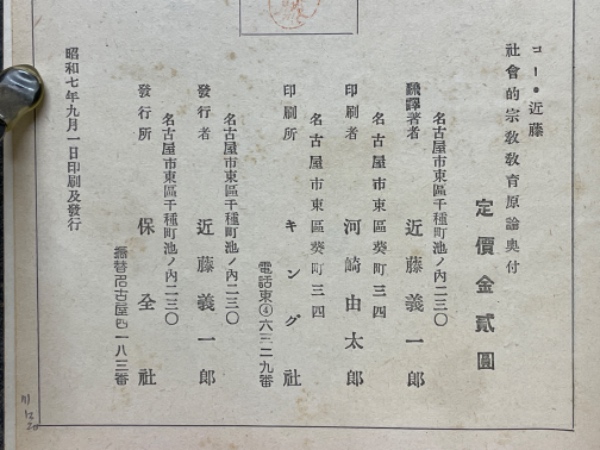 コー・近藤
社會的宗敎敎育原論奥付
定價金貳圓
名古屋市東區千種町池ノ內二三〇
飜譯著者　近藤義一郎
名古屋市東區葵町三四
印刷者　河崎由太郎
名古屋市東區葵町三四
印刷所　キング社
電話東④六三二九番
名古屋市東區千種町池ノ內二三〇
發行者　近藤義一郎
名古屋市東區千種町池ノ內二三〇
發行所　保全社
振替名古屋四一八三番
昭和七年九月一日印刷及發行